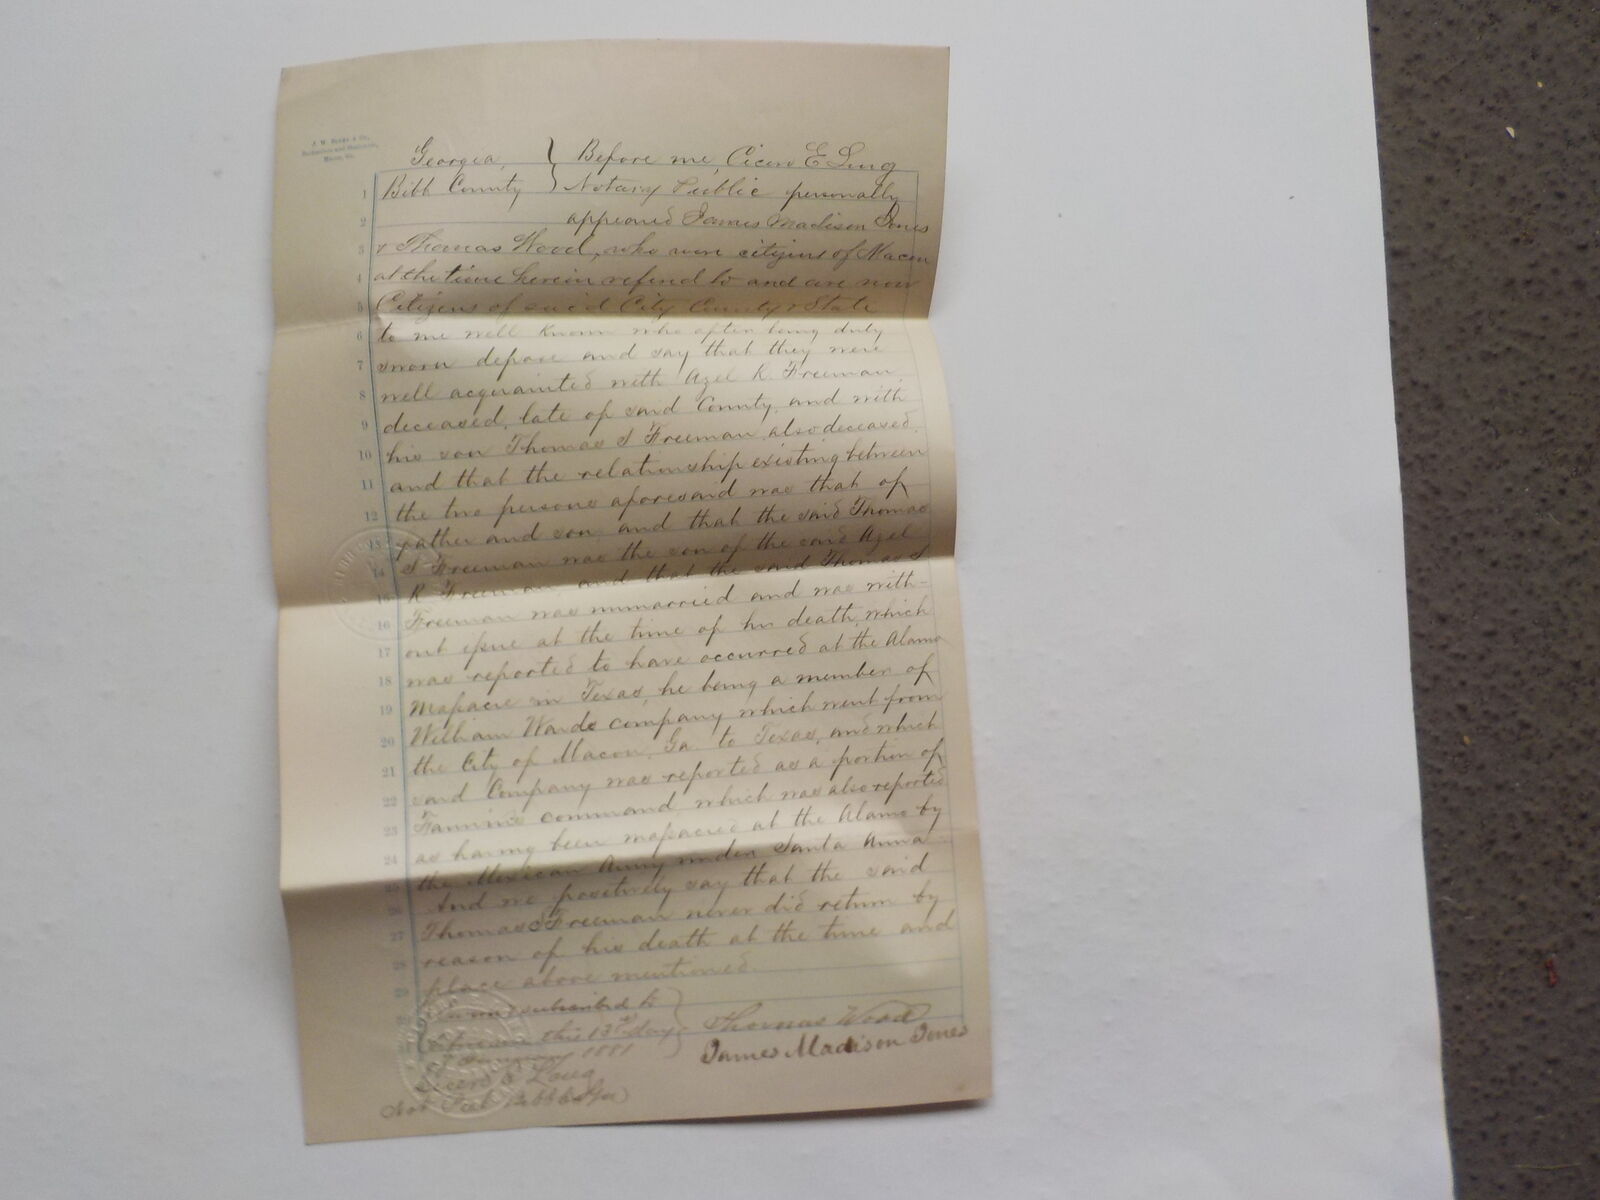 J. W. Burke & Co.,
Macon, Ga.
Georgia, } Before me, Cicero E Long
1 Bibb County } Notary Public personally
2 appeared James Madison Jones
3 & Thomas Wood, who were citizens of Macon
4 at the time herein refered to and are now
5 Citizens of said City County & State
6 to me well known who after being duly
7 sworn depose and say that they were
8 well acquainted with Azel R. Freeman,
9 deceased, late of said County, and with
10 his son Thomas S Freeman, also deceased,
11 and that the relationship existing between
12 the two persons aforesaid was that of
13 father and son, and that the said Thomas
14 S Freeman was the son of the said Azel
15 R Freeman, and that the said Thomas S
16 Freeman was unmarried and was with-
17 out issue at the time of his death, which
18 was reported to have occurred at the Alamo
19 Massacre in Texas, he being a member of
20 William Wards company which went from
21 the City of Macon, Ga. to Texas, and which
22 said Company was reported as a portion of
23 Fannin's command, which was also reported
24 as having been massacred at the Alamo by
25 the Mexican Army under Santa Anna
26 And we positively say that the said
27 Thomas S Freeman never did return by
28 reason of his death at the time and
29 place above mentioned.
Sworn & subscribed to
before me this 13th day } Thomas Wood
January 1881 James Madison Jones
Cicero E Long
Not Pub Bibb Co Ga